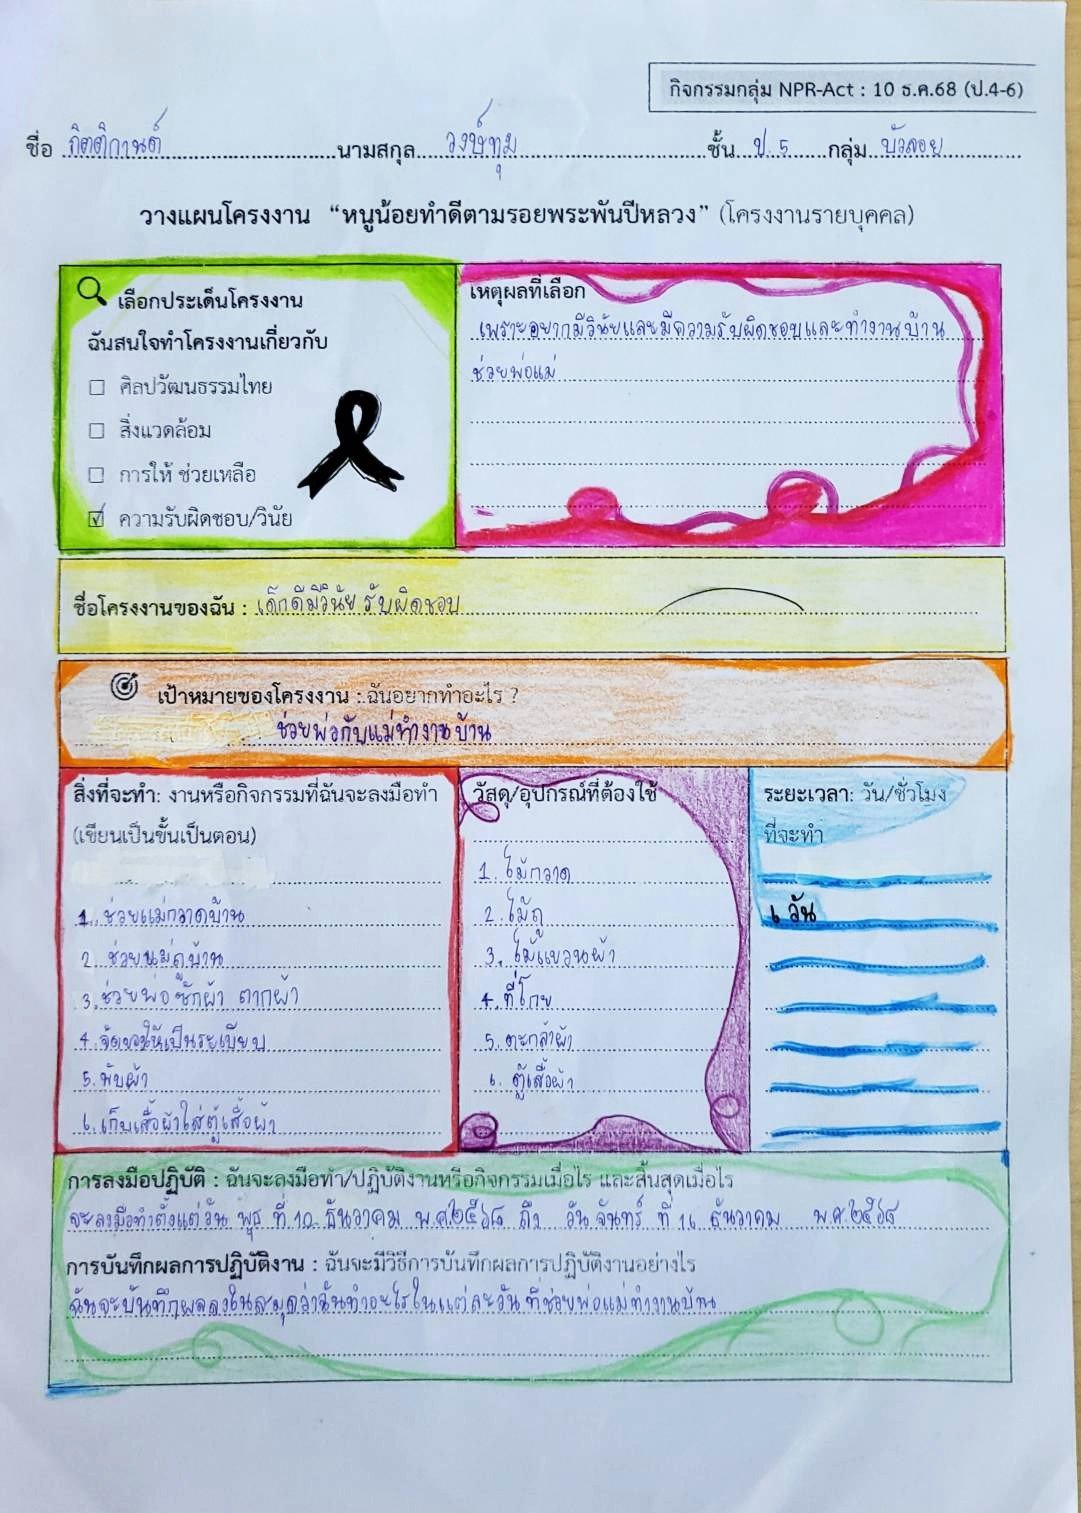 กิจกรรมกลุ่ม NPR-Act : 10 ธ.ค.68 (ป.4-6)
ชื่อ กิตติกานต์ นามสกุล วงษ์ทุม ชั้น ป.5 กลุ่ม บัวลอย
วางแผนโครงงาน “หนูน้อยทำดีตามรอยพระพันปีหลวง” (โครงงานรายบุคคล)
เลือกประเด็นโครงงาน
ฉันสนใจทำโครงงานเกี่ยวกับ
☐ ศิลปวัฒนธรรมไทย
☐ สิ่งแวดล้อม
☐ การให้ ช่วยเหลือ
☑ ความรับผิดชอบ/วินัย
เหตุผลที่เลือก
เพราะอยากมีวินัยและมีความรับผิดชอบและทำงานบ้าน
ช่วยพ่อแม่
ชื่อโครงงานของฉัน : เด็กดีมีวินัย รับผิดชอบ
เป้าหมายของโครงงาน : ฉันอยากทำอะไร ?
ช่วยพ่อกับแม่ทำงานบ้าน
สิ่งที่จะทำ: งานหรือกิจกรรมที่ฉันจะลงมือทำ
(เขียนเป็นขั้นเป็นตอน)
1. ช่วยแม่กวาดบ้าน
2. ช่วยแม่ถูบ้าน
3. ช่วยพ่อซักผ้า ตากผ้า
4. จัดของให้เป็นระเบียบ
5. พับผ้า
6. เก็บเสื้อผ้าใส่ตู้เสื้อผ้า
วัสดุ/อุปกรณ์ที่ต้องใช้
1. ไม้กวาด
2. ไม้ถู
3. ไม้แขวนผ้า
4. ที่โกย
5. ตะกล้าผ้า
6. ตู้เสื้อผ้า
ระยะเวลา: วัน/ชั่วโมง
ที่จะทำ
6 วัน
การลงมือปฏิบัติ : ฉันจะลงมือทำ/ปฏิบัติงานหรือกิจกรรมเมื่อไร และสิ้นสุดเมื่อไร
จะลงมือทำตั้งแต่วัน พุธ ที่ 10 ธันวาคม พ.ศ.๒๕๖๘ ถึง วันจันทร์ ที่ 16 ธันวาคม พ.ศ.๒๕๖๘
การบันทึกผลการปฏิบัติงาน : ฉันจะมีวิธีการบันทึกผลการปฏิบัติงานอย่างไร
ฉันจะบันทึกผลลงในสมุดว่าฉันทำอะไรในแต่ละวัน ที่ช่วยพ่อแม่ทำงานบ้าน